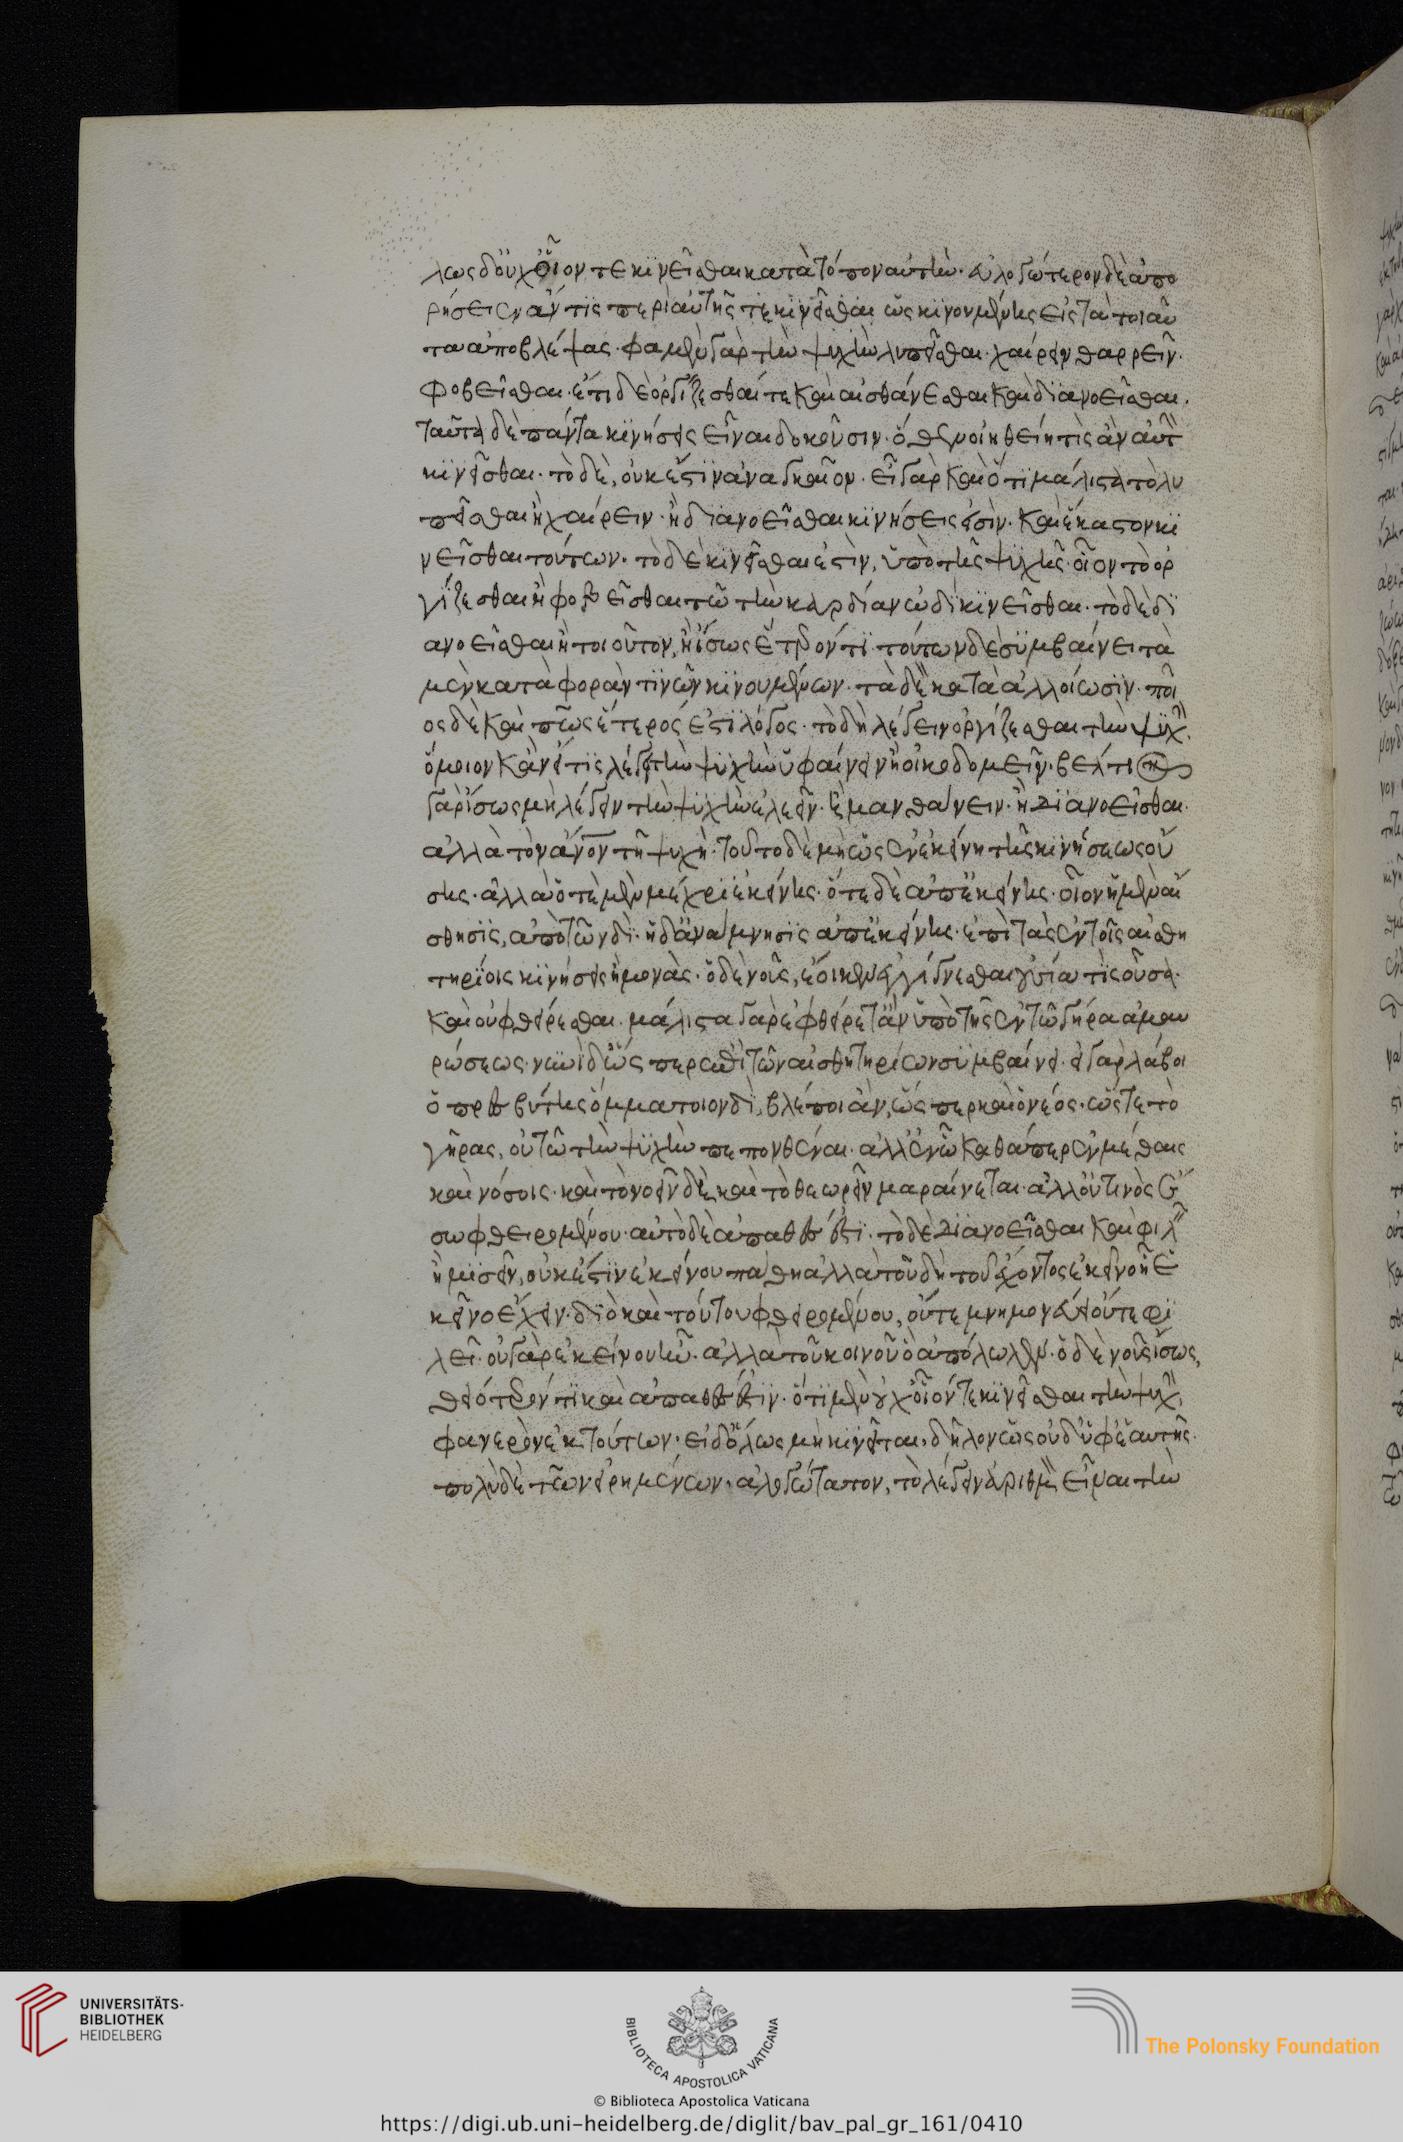 λως δ' οὐχ οἷόν τε κινεῖσθαι κατὰ τόπον αὐτήν. εὐλογώτερον δὲ ἀπο
ρήσειεν ἄν τις περὶ αὐτῆς τε κινεῖσθαι ὡς κινουμένης εἰς τὰ τοιαῦ
τα ἀποβλέψας. φαμὲν γὰρ τὴν ψυχὴν λυπεῖσθαι. χαίρειν θαρρεῖν.
φοβεῖσθαι. ἔτι δὲ ὀργίζεσθαί τε καὶ αἰσθάνεσθαι καὶ διανοεῖσθαι.
ταῦτα δὲ πάντα κινήσεις εἶναι δοκοῦσιν. ὅθεν οἰηθείη τὶς ἂν αὐτὴν
κινεῖσθαι. τὸ δὲ, οὐκ ἔστιν ἀναγκαῖον. εἰ γὰρ καὶ ὅτι μάλιστα τὸ λυ
πεῖσθαι ἢ χαίρειν. ἢ διανοεῖσθαι κινήσεις εἰσίν. καὶ ἕκαστον κι
νεῖσθαι τούτων. τὸ δὲ κινεῖσθαι ἐστὶν, ὑπὸ τῆς ψυχῆς. οἷον τὸ ὀρ
γίζεσθαι ἢ φοβεῖσθαι τῷ τὴν καρδίαν ὡδὶ κινεῖσθαι. τὸ δὲ δι
ανοεῖσθαι ἢ τοιοῦτον, ἢ ἴσως ἕτερόν τι. τούτων δὲ συμβαίνει τὰ
μὲν κατὰ φοράν τινῶν κινουμένων. τὰ δὲ κατὰ ἀλλοίωσιν. ποῖ
ος δὲ καὶ πῶς ἕτερός ἐστι λόγος. τὸ δὴ λέγειν ὀργίζεσθαι τὴν ψυχὴν.
ὅμοιον κἂν εἴ τις λέγει τὴν ψυχὴν ὑφαίνειν ἢ οἰκοδομεῖν. βέλτιον
γὰρ ἴσως μὴ λέγειν τὴν ψυχὴν ἐλεεῖν. ἢ μανθάνειν. ἢ διανοεῖσθαι.
ἀλλὰ τὸν ἄνον τῇ ψυχῇ. τοῦτο δὲ μὴ ὡς ἐν ἐκείνῃ τῆς κινήσεως οὔ
σης. ἀλλὰ ὁτὲ μὲν μέχρι ἐκείνης. ὁτὲ δὲ ἀπ' ἐκείνης. οἷον ἡ μὲν αἴ
σθησις, ἀπὸ τῶνδὶ. ἡ δ' ἀνάμνησις ἀπ' ἐκείνης. ἐπὶ τὰς ἐν τοῖς αἰσθη
τηρίοις κινήσεις ἢ μονὰς. ὁ δὲ νοῦς, ἔοικεν ἐγγίγνεσθαι οὐσία τὶς οὖσα.
καὶ οὐ φθείρεσθαι. μάλιστα γὰρ ἐφθείρετ' ἂν ὑπὸ τῆς ἐν τῷ γήρᾳ ἀμαυ
ρώσεως. νῦν δ' ὥς περ ἐπὶ τῶν αἰσθητηρίων συμβαίνει. εἰ γὰρ λάβοι
ὁ πρεσβύτης ὄμμα τοιονδὶ, βλέποι ἂν, ὥς περ καὶ ὁ νέος. ὥστε τὸ
γῆρας, οὐ τῷ τὴν ψυχὴν πεπονθέναι. ἀλλ' ἐν ᾧ καθάπερ ἐν μέθαις
καὶ νόσοις. καὶ τὸ νοεῖν δὲ, καὶ τὸ θεωρεῖν μαραίνεται. ἄλλου τινὸς ἔ
σω φθειρομένου. αὐτὸ δὲ ἀπαθές ἐστι. τὸ δὲ διανοεῖσθαι καὶ φιλεῖν
ἢ μισεῖν, οὐκ ἔστιν ἐκείνου πάθη ἀλλὰ τοῦ δὴ τοῦ ἔχοντος ἐκεῖνο ἢ ἐ
κεῖνο ἔχειν. διὸ καὶ τούτου φθειρομένου, οὔτε μνημονεύει οὔτε φι
λεῖ. οὐ γὰρ ἐκείνου ἦν. ἀλλὰ τοῦ κοινοῦ ὃ ἀπόλωλεν. ὁ δὲ νοῦς ἴσως,
θειότερόν τι καὶ ἀπαθές ἐστιν. ὅτι μὲν οὐχ οἷόν τε κινεῖσθαι τὴν ψυχὴν,
φανερὸν ἐκ τούτων. εἰ δ' ὅλως μὴ κινεῖται, δῆλον ὡς οὐδ' ὑφ' ἑαυτῆς.
πολὺ δὲ τῶν εἰρημένων. ἀλογώτατον, τὸ λέγειν ἀριθμὸν εἶναι τὴν
UNIVERSITÄTS-
BIBLIOTHEK
HEIDELBERG
BIBLIOTECA APOSTOLICA VATICANA
The Polonsky Foundation
© Biblioteca Apostolica Vaticana
https://digi.ub.uni-heidelberg.de/diglit/bav_pal_gr_161/0410